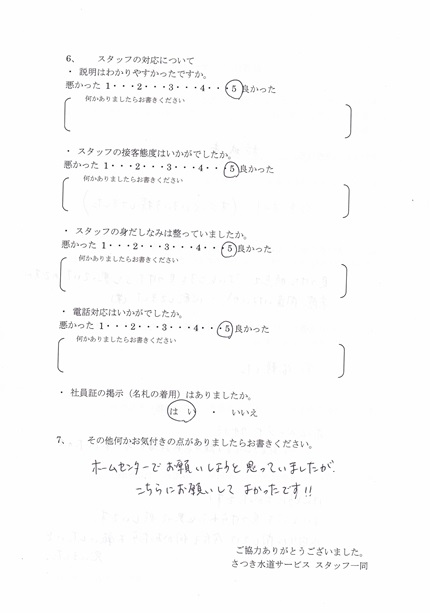 6、 スタッフの対応について
・ 説明はわかりやすかったですか。
悪かった 1・・・2・・・3・・・4・・・5 良かった
何かありましたらお書きください
・ スタッフの接客態度はいかがでしたか。
悪かった 1・・・2・・・3・・・4・・・5 良かった
何かありましたらお書きください
・ スタッフの身だしなみは整っていましたか。
悪かった 1・・・2・・・3・・・4・・・5 良かった
何かありましたらお書きください
・ 電話対応はいかがでしたか。
悪かった 1・・・2・・・3・・・4・・・5 良かった
何かありましたらお書きください
・ 社員証の掲示（名札の着用）はありましたか。
はい ・ いいえ
7、 その他何かお気付きの点がありましたらお書きください。
ホームセンターでお願いしようと思っていましたが、
こちらにお願いして よかったです!!
ご協力ありがとうございました。
さつき水道サービス スタッフ一同